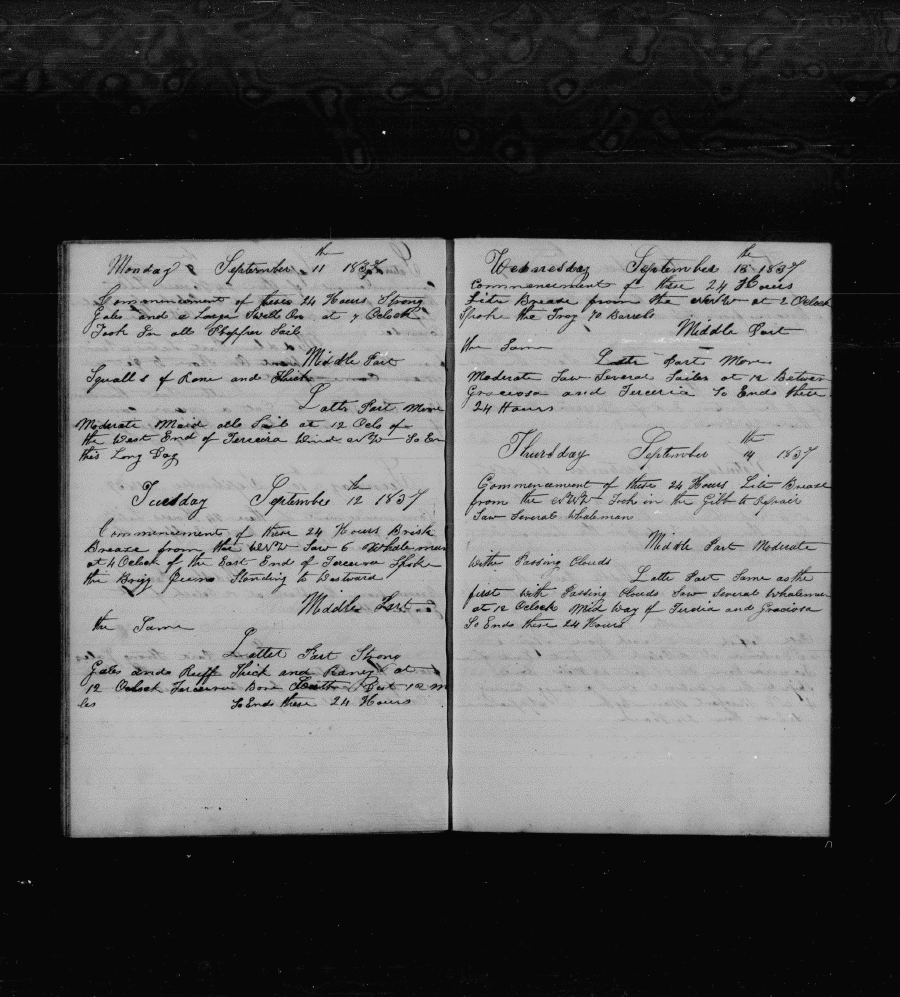 Monday September 11th 1837
Commencement of these 24 Hours Strong
Gales and a Large Swell On at 7 Oclock
Took In all Stopper Sail
Middle Part
Squalls of Rane and Thick
Latte Part More
Moderate Maid alls Sail at 12 Oclo of
the West End of Tercera Wind So En
this Long Day
Tuesday September 12th 1837
Commencement of these 24 Hours Brisk
Breaze from the WNW Saw 6 Whale men
at 4 Oclock of the East End of Tercera Spoke
the Brigg Standing to Eastward
Middle Part
the Same
Latter Part Strong
Gales and Ruff Thick and Raney at
12 Oclock Tercera Bore South West 12 m
les So Ends these 24 Hours
Wednesday September 13th 1837
Commencement of these 24 Hours
Lite Breaze from the at 2 Oclock
Spoke the Troy 70 Barrels
Middle Part
the Same
Latte Part More
Moderate Saw Several Sailes at 12 Between
Graciosa and Terceria So Ends these
24 Hours
Thursday September 14th 1837
Commencement of these 24 Hours Lite Breaze
from the Took in the Gibb to Repair
Saw Several Whaleman
Middle Part Moderate
withe Passing Clouds
Latte Part Same as the
first with Passing Clouds Saw Several Whalemen
at 12 Oclock Mid Way of and Graciosa
So Ends these 24 Hours